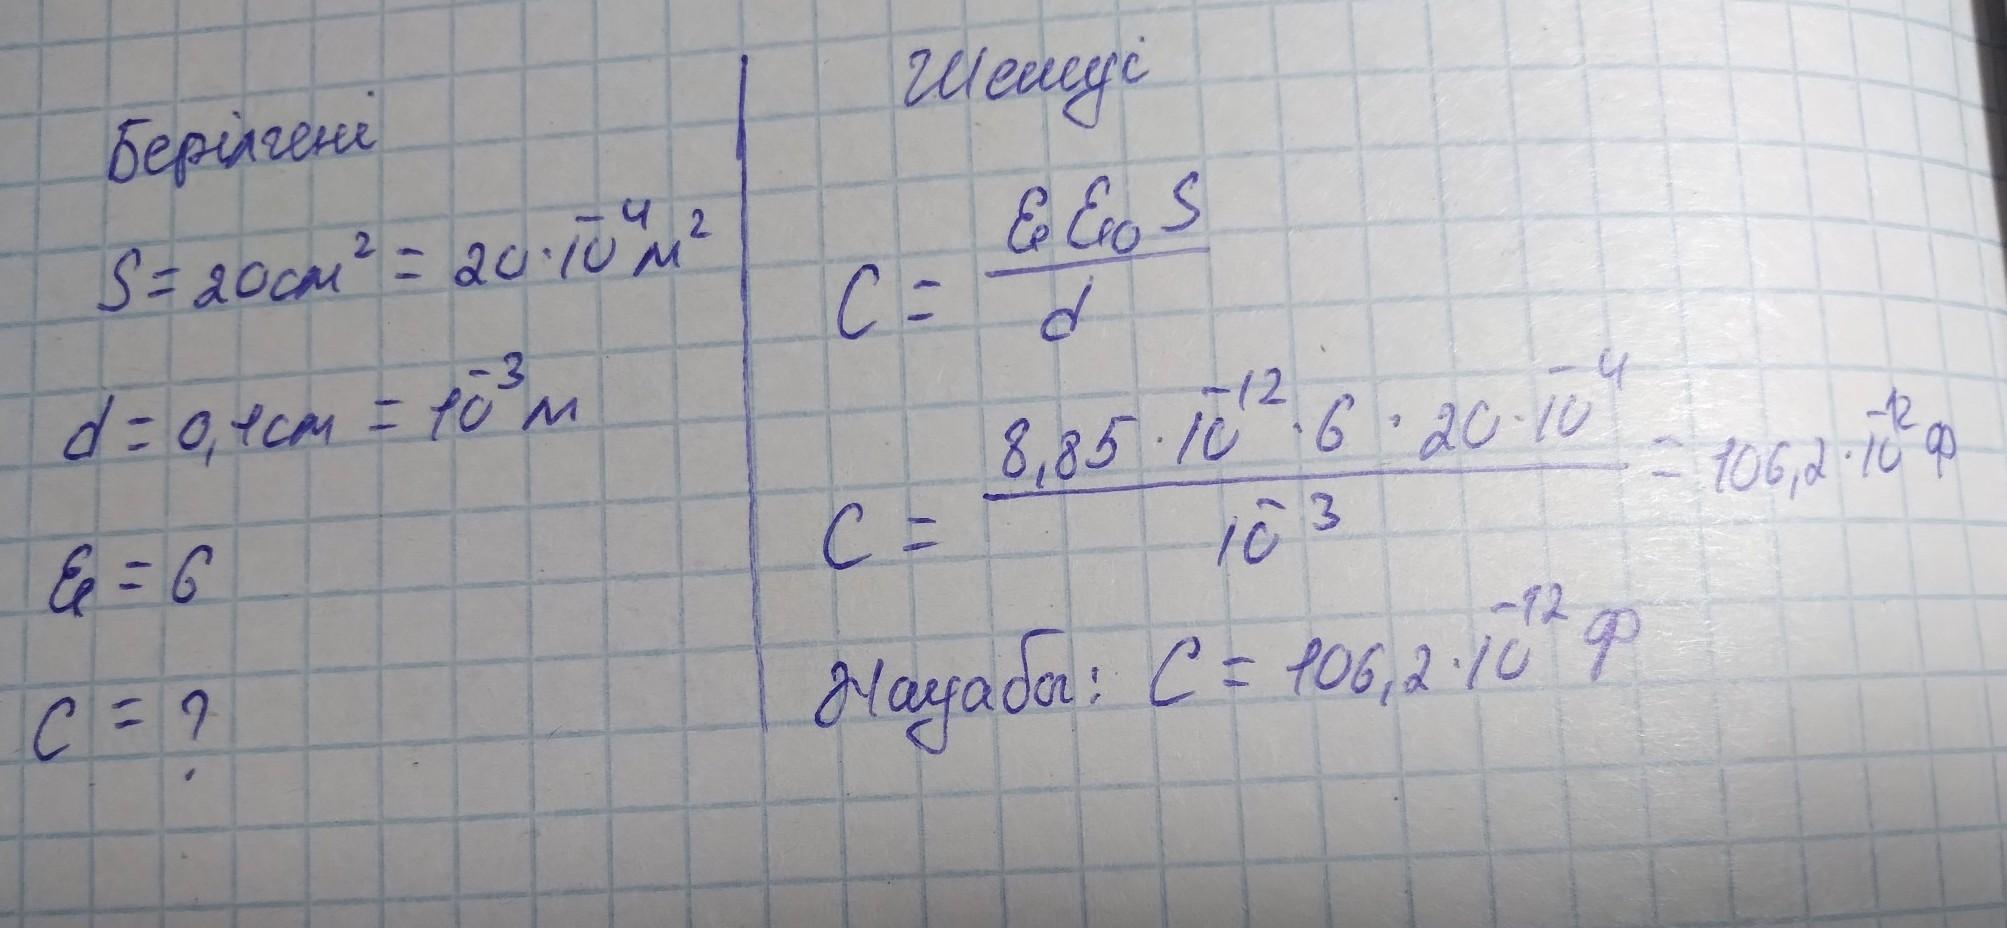 Берілгені
S = 20см² = 20·10⁻⁴м²
d = 0,1см = 10⁻³м
ε = 6
C = ?
Шешуі
C = εε₀S / d
C = 8,85·10⁻¹²·6·20·10⁻⁴ / 10⁻³ = 106,2·10⁻¹²Ф
Жауабы: C = 106,2·10⁻¹²Ф